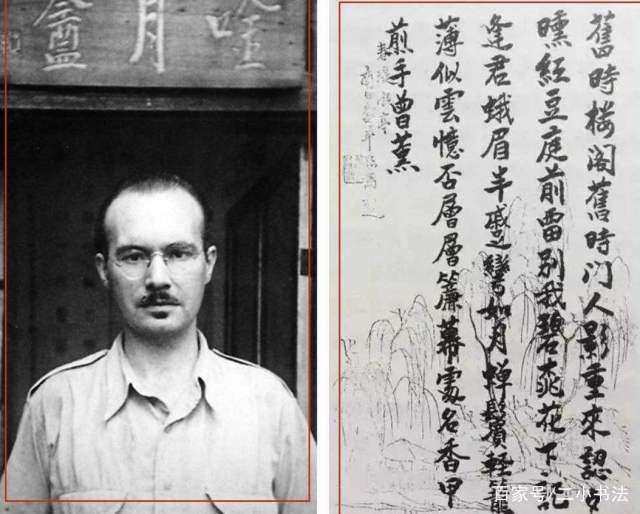 唫月盦
舊時楼阁舊時门人影重來認夕
曛紅豆庭前留別我碧桃花下記
逢君蛾眉半蹙彎如月嚲鬢輕籠
薄似雲憶否層層簾幕處名香甲
煎手曾薰
百家号/二小书法